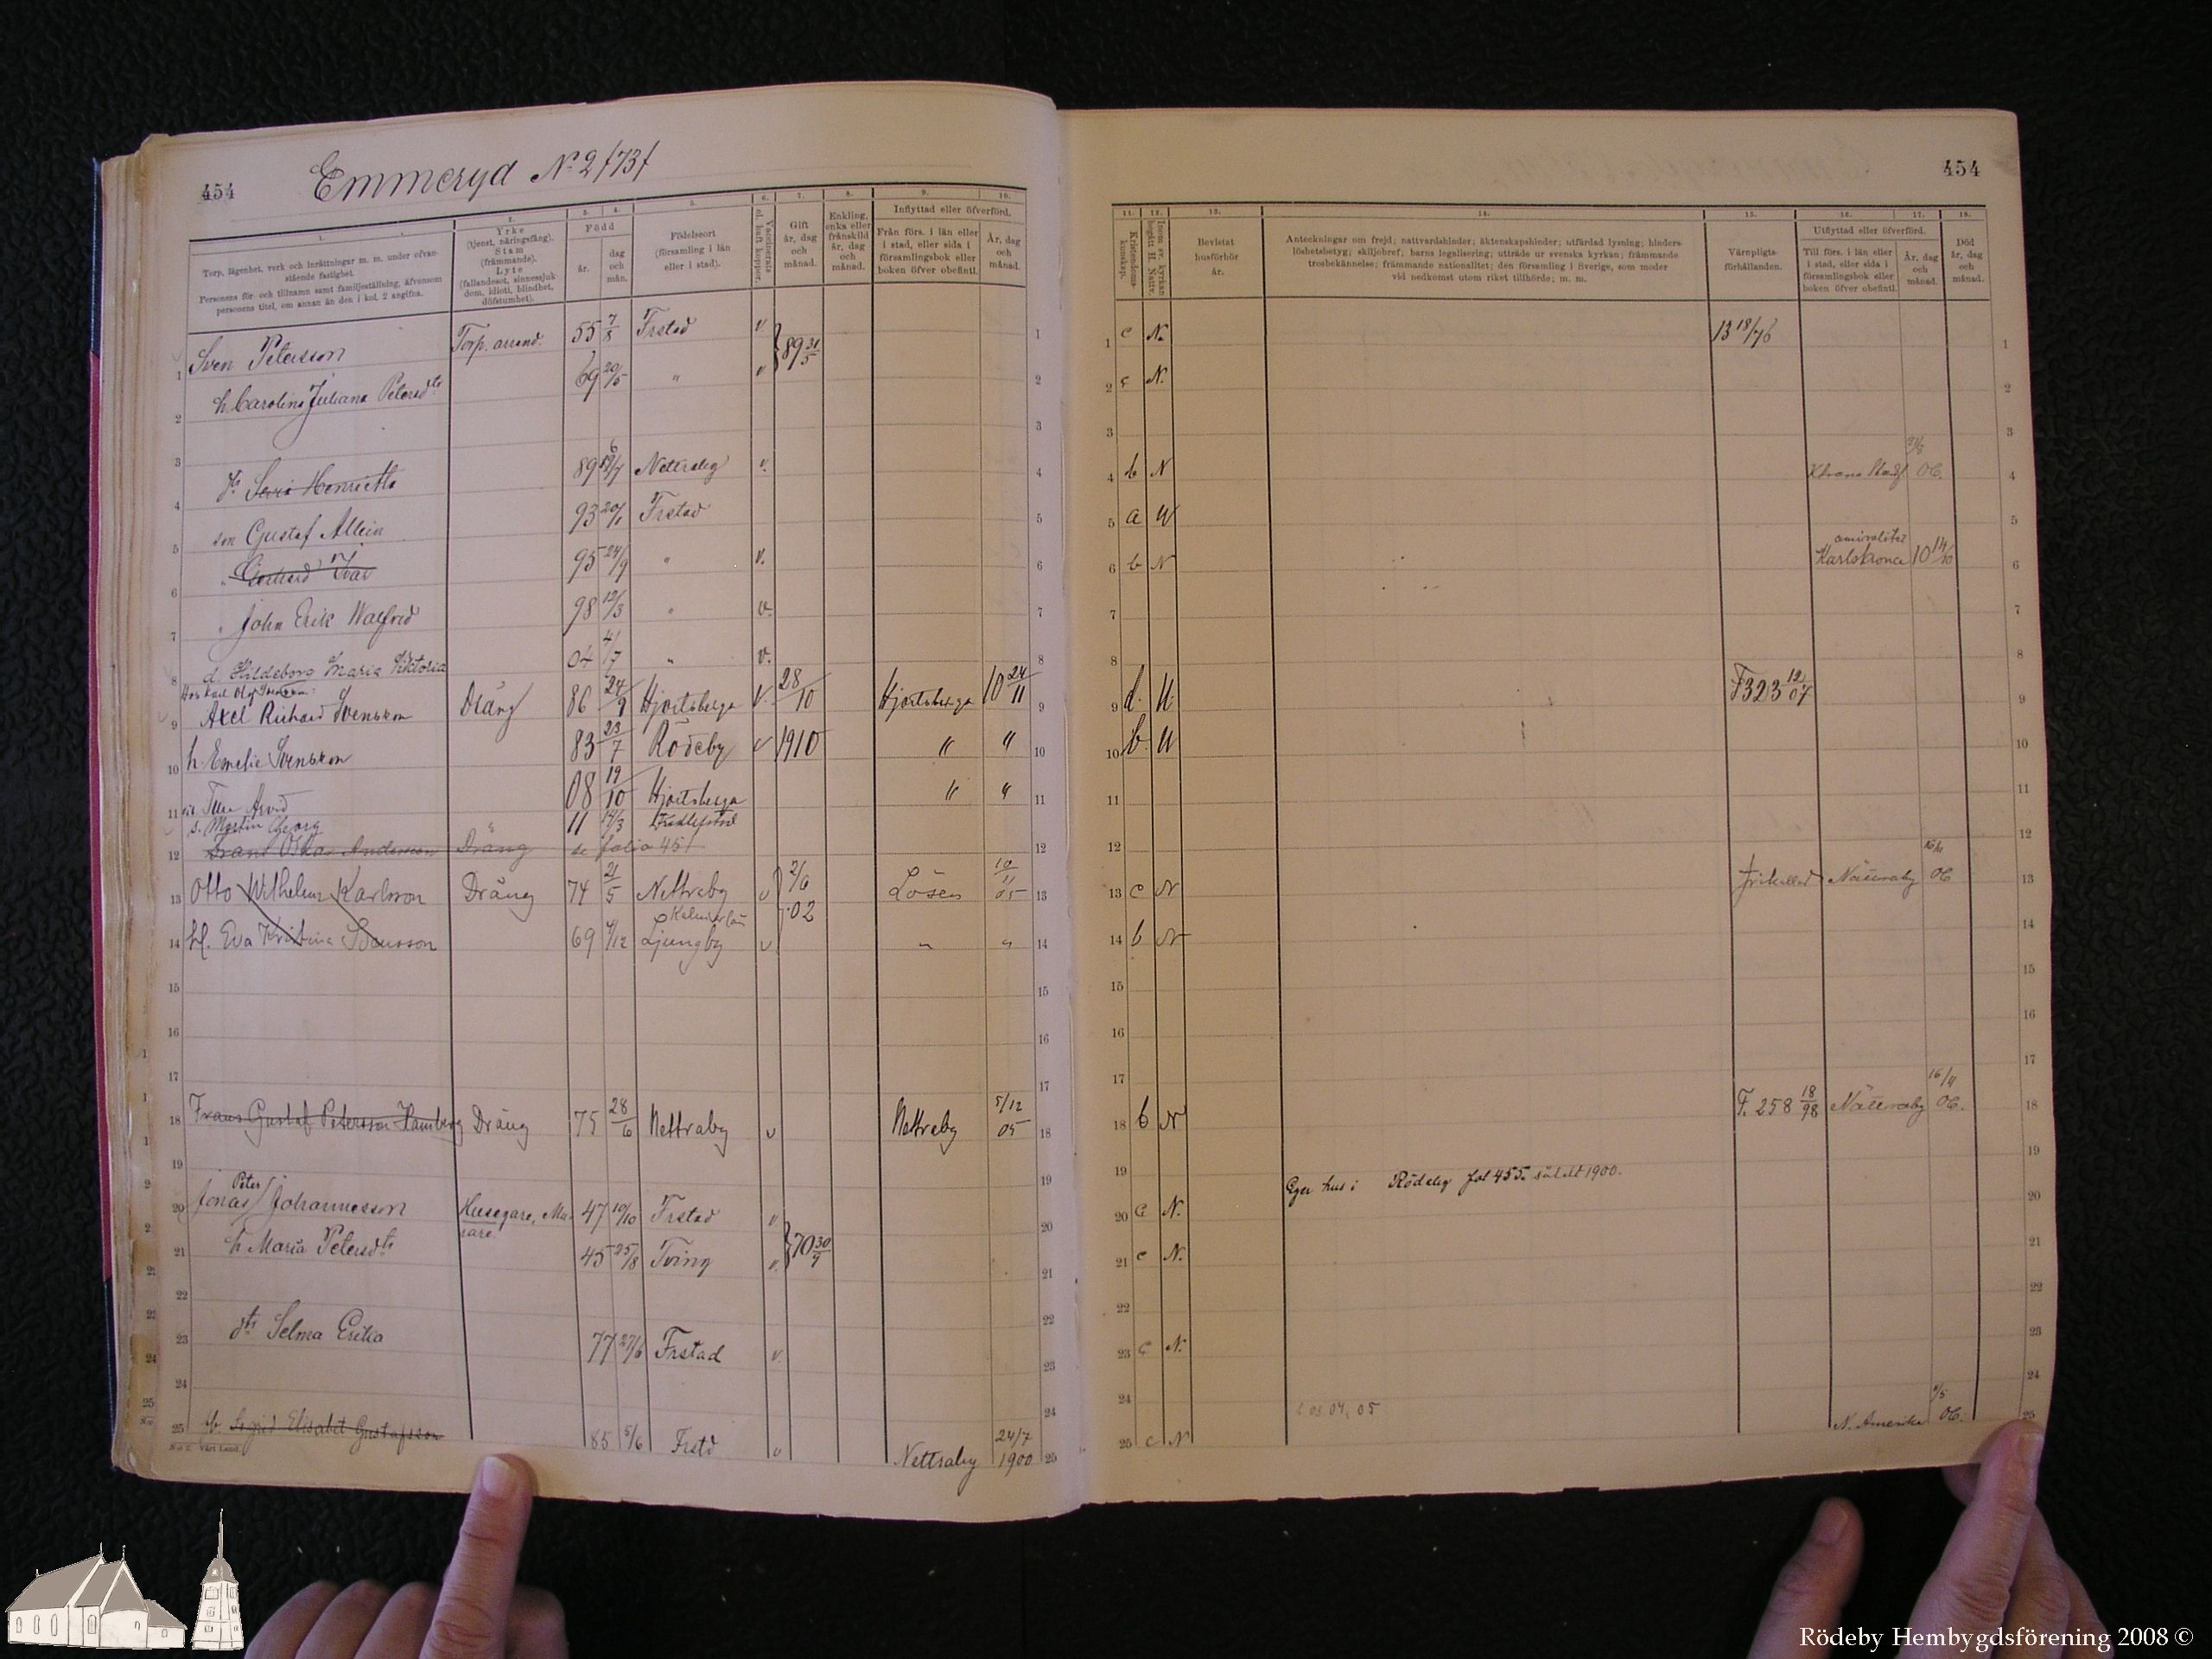 454
Emmeryd No 2 /73/
1. 2. 3. 4. 5. 6. 7. 8. 9. 10.
Torp, lägenhet, verk och inrättningar m. m. under ofvanstående fastighet.
Personens för- och tillnamn samt familjeställning, äfvensom personens titel, om annan än den i kol. 2 angifna.
Yrke
(tjenst, näringsfång).
Stam
(främmande).
Lyte
(fallandesot, sinnessjukdom, idioti, blindhet, döfstumhet).
Född
år.
dag och mån.
Födelseort
(församling i län eller i stad).
Gift
år, dag och månad.
Enkling, enka eller frånskild
år, dag och månad.
Inflyttad eller öfverförd.
Från förs. i län eller i stad, eller sida i församlingsbok eller boken öfver obefintl.
År, dag och månad.
1 Sven Petersson Torp. arrend. 55 7/8 Frstad v. 89 31/5 1
2 h. Carolina Juliana Petersdtr 69 20/5 " v 2
3 3
4 dr Henrietta 89 Nettraby v. 4
5 son Gustaf Allvin 93 20/1 Frstad 5
6 " Gerhard Ivar 95 24/9 " v. 6
7 " John Erik Walfrid 98 12/3 " v. 7
8 d. Hildeborg Maria Viktoria 04 " v. 8
9 Axel Richard Svensson Dräng 86 24/9 Hjortsberga v. 28/10 Hjortsberga 10 24/11 9
10 h. Emelie Svensson 83 23/7 Rödeby v 1910 " " 10
11 Ture Arvid 08 19/10 Hjortsberga " " 11
s. Martin Georg 11 14/3
12 Frans Oskar Andersson Dräng se folio 451 12
13 Otto Wilhelm Karlsson Dräng 74 21/5 Nettraby v 2/6 02 Lösen 10/11 05 13
14 H. Eva Kristina Svensson 69 4/12 Ljungby Kalmar län v " " 14
15 15
16 16
17 17
18 Frans Gustaf Petersson Hamberg Dräng 75 28/6 Nettraby v Nettraby 5/12 05 18
19 19
20 Jonas Peter Johannesson Husegare, Murare 47 10/10 Frstad v. 70 30/9 20
21 h. Maria Petersdtr 45 25/8 Tving v. 21
22 22
23 dtr Selma Erika 77 27/6 Frstad v. 23
24 24
25 Sigrid Elisabet Gustafsson 85 5/6 Frstd v Nettraby 24/7 1900 25
454
11. 12. 13. 14. 15. 16. 17. 18.
Kristendomskunskap.
Inom sv. kyrkan begått H. Nattv.
Bevistat husförhör år.
Anteckningar om frejd; nattvardshinder; äktenskapshinder; utfärdad lysning; hinderslöshetsbetyg; skiljobref; barns legalisering; utträde ur svenska kyrkan; främmande trosbekännelse; främmande nationalitet; den församling i Sverige, som moder vid nedkomst utom riket tillhörde; m. m.
Värnpligtsförhållanden.
Utflyttad eller öfverförd.
Till förs. i län eller i stad, eller sida i församlingsbok eller boken öfver obefintl.
År, dag och månad.
Död
år, dag och månad.
1 c N. 13 18/76 1
2 c N. 2
3 3
4 b N 06. 4
5 a U 5
6 b N amiralitets Karlskrona 10 14/10 6
7 7
8 8
9 d. U. F323 12/07 9
10 b. U 10
11 11
12 12
13 c N frikallad Nättraby 06 13
14 b N 14
15 15
16 16
17 17
18 b N F. 258 18/98 Nättraby 16/11 06. 18
19 Eger hus i Rödeby fol 455 1900. 19
20 c N. 20
21 c N. 21
22 22
23 c N. 23
24 03 04, 05 24
25 c N N. Amerika 06. 25
Rödeby Hembygdsförening 2008 ©